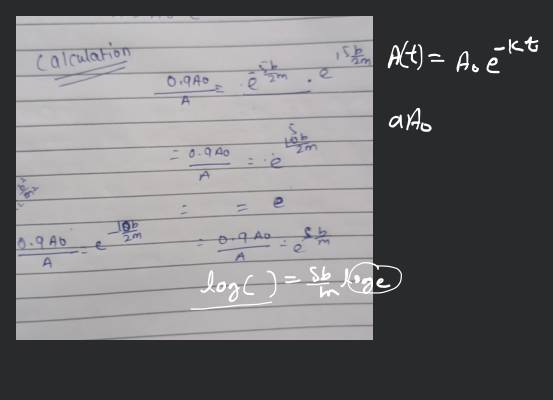 Calculation
0.9A₀/A = e^(-5b/2m) . e^(15b/2m)
A(t) = A₀e^(-Kt)
aA₀
= 0.9A₀/A = e^(10b/2m)
= = e
0.9A₀/A = e^(-10b/2m)
= 0.9A₀/A = e^(5b/m)
log( ) = 5b/m loge